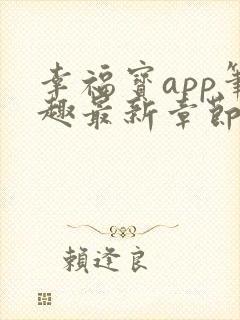 幸福寶app筆
趣最新章節
賴逢良